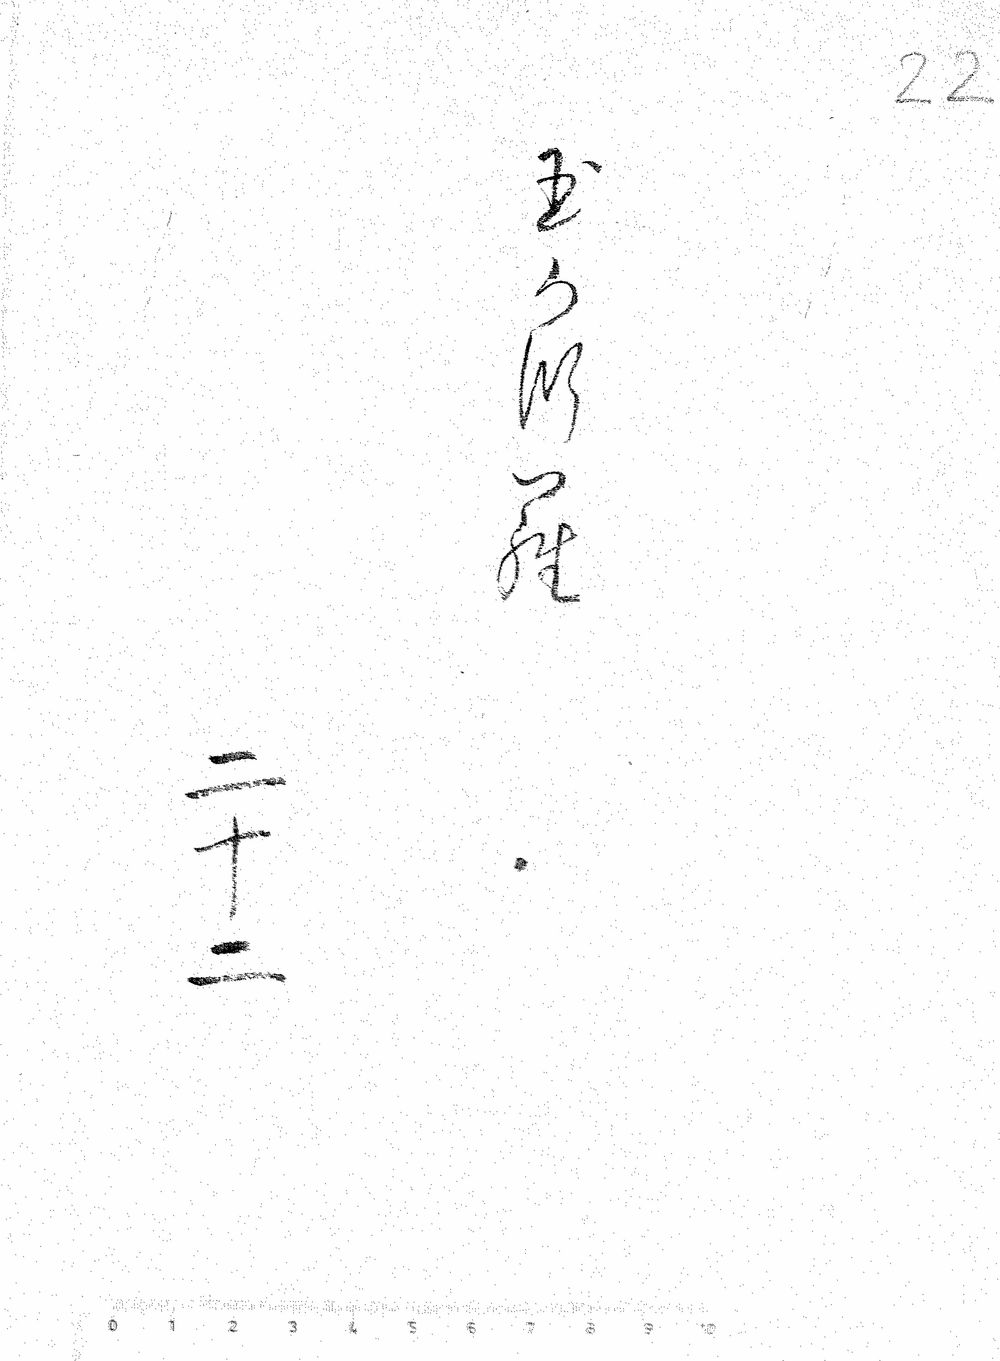 22
玉可川羅
二十二
0 1 2 3 4 5 6 7 8 9 10